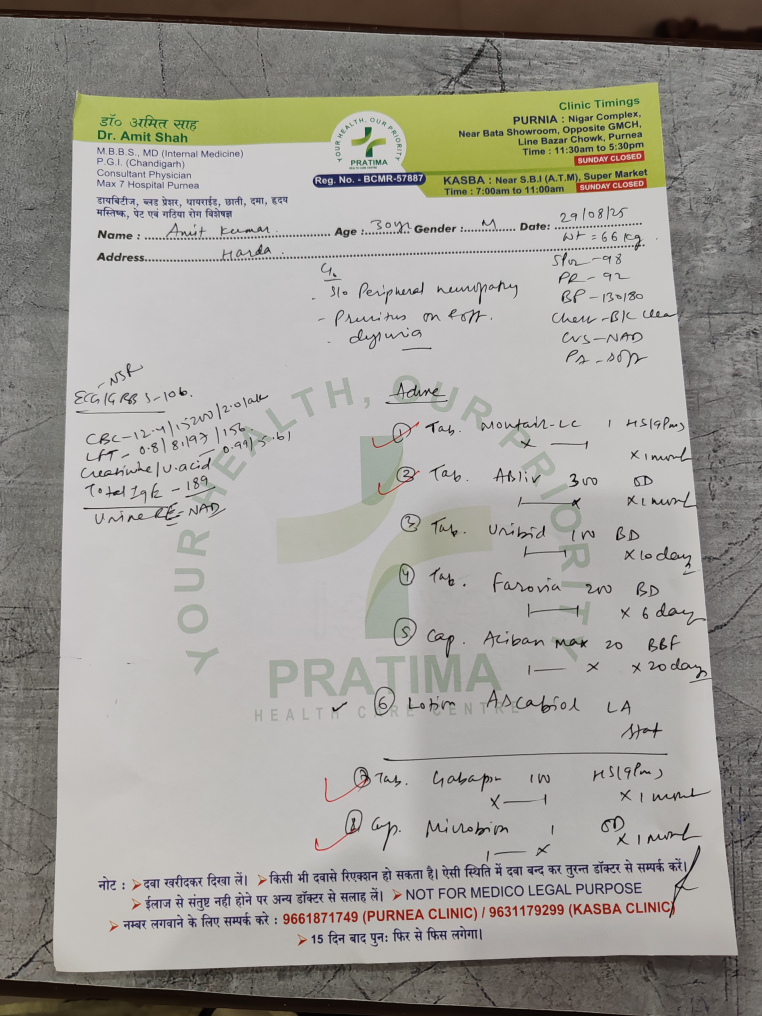 डॉ० अमित साह
Dr. Amit Shah
M.B.B.S., MD (Internal Medicine)
P.G.I. (Chandigarh)
Consultant Physician
Max 7 Hospital Purnea
डायबिटीज, ब्लड प्रेशर, थायराईड, छाती, दमा, हृदय
मस्तिष्क, पेट एवं गठिया रोग विशेषज्ञ
YOUR HEALTH, OUR PRIORITY
PRATIMA
HEALTH CARE CENTRE
Reg. No. - BCMR-57887
Clinic Timings
PURNIA : Nigar Complex,
Near Bata Showroom, Opposite GMCH,
Line Bazar Chowk, Purnea
Time : 11:30am to 5:30pm
SUNDAY CLOSED
KASBA : Near S.B.I (A.T.M), Super Market
Time : 7:00am to 11:00am SUNDAY CLOSED
Name : Amit Kumar Age : 30yr Gender : M Date: 29/08/25
Address Harda
Wt = 66 kg
SPO2 - 98
PR - 92
BP - 130/80
Chest - B/L Clear
CVS - NAD
PA - soft
S/o Peripheral neuropathy
- Pruritus on & off.
- dysuria
- NSR
ECG/GRBS - 106.
CBC - 12.4/15200/2.01
LFT - 0.8/81/97/156
Creatinine/U.acid - 0.99/5.61
Total IgE - 189
Urine RE - NAD
Advise
YOUR HEALTH, OUR PRIORITY
PRATIMA
HEALTH CARE CENTRE
① Tab. Montair-LC 1 HS (9pm)
x 1 month
② Tab. Abliv 300 OD
x 1 month
③ Tab. Uribid 100 BD
x 10 days
④ Tab. Farovia 200 BD
x 6 days
⑤ Cap. Aciban Max 20 BBF
x 20 days
⑥ Lotion Ascabiol LA
stat
⑦ Tab. Gabapin 100 HS (9pm)
x 1 month
⑧ Cap. 1 OD
x 1 month
नोट : ➢ दवा खरीदकर दिखा लें। ➢ किसी भी दवासे रिएक्शन हो सकता है। ऐसी स्थिति में दवा बन्द कर तुरन्त डॉक्टर से सम्पर्क करें।
➢ ईलाज से संतुष्ट नही होने पर अन्य डॉक्टर से सलाह लें। ➢ NOT FOR MEDICO LEGAL PURPOSE
➢ नम्बर लगवाने के लिए सम्पर्क करे : 9661871749 (PURNEA CLINIC) / 9631179299 (KASBA CLINIC)
➢ 15 दिन बाद पुनः फिर से फिस लगेगा।